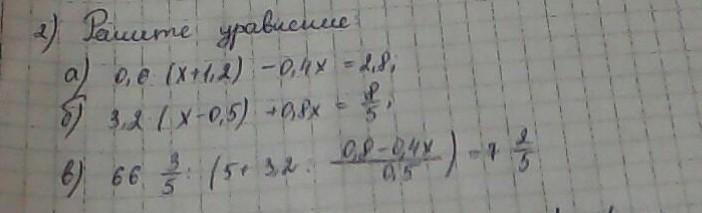 2) Решите уравнение:
а) 0,6 (x+1,2) -0,4x = 2,8;
б) 3,2 · (x-0,5) +0,8x = 8/5;
в) 66 3/5 : (5 + 3,2 · (0,8-0,4x)/0,5) = 7 2/5